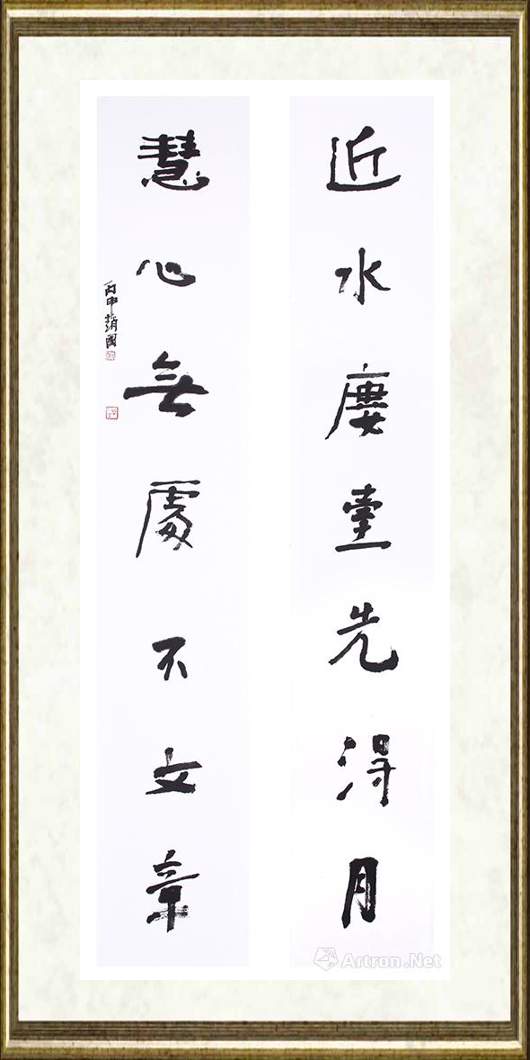 近水廔臺先得月
慧心無處不文章
丙申
Artron.Net